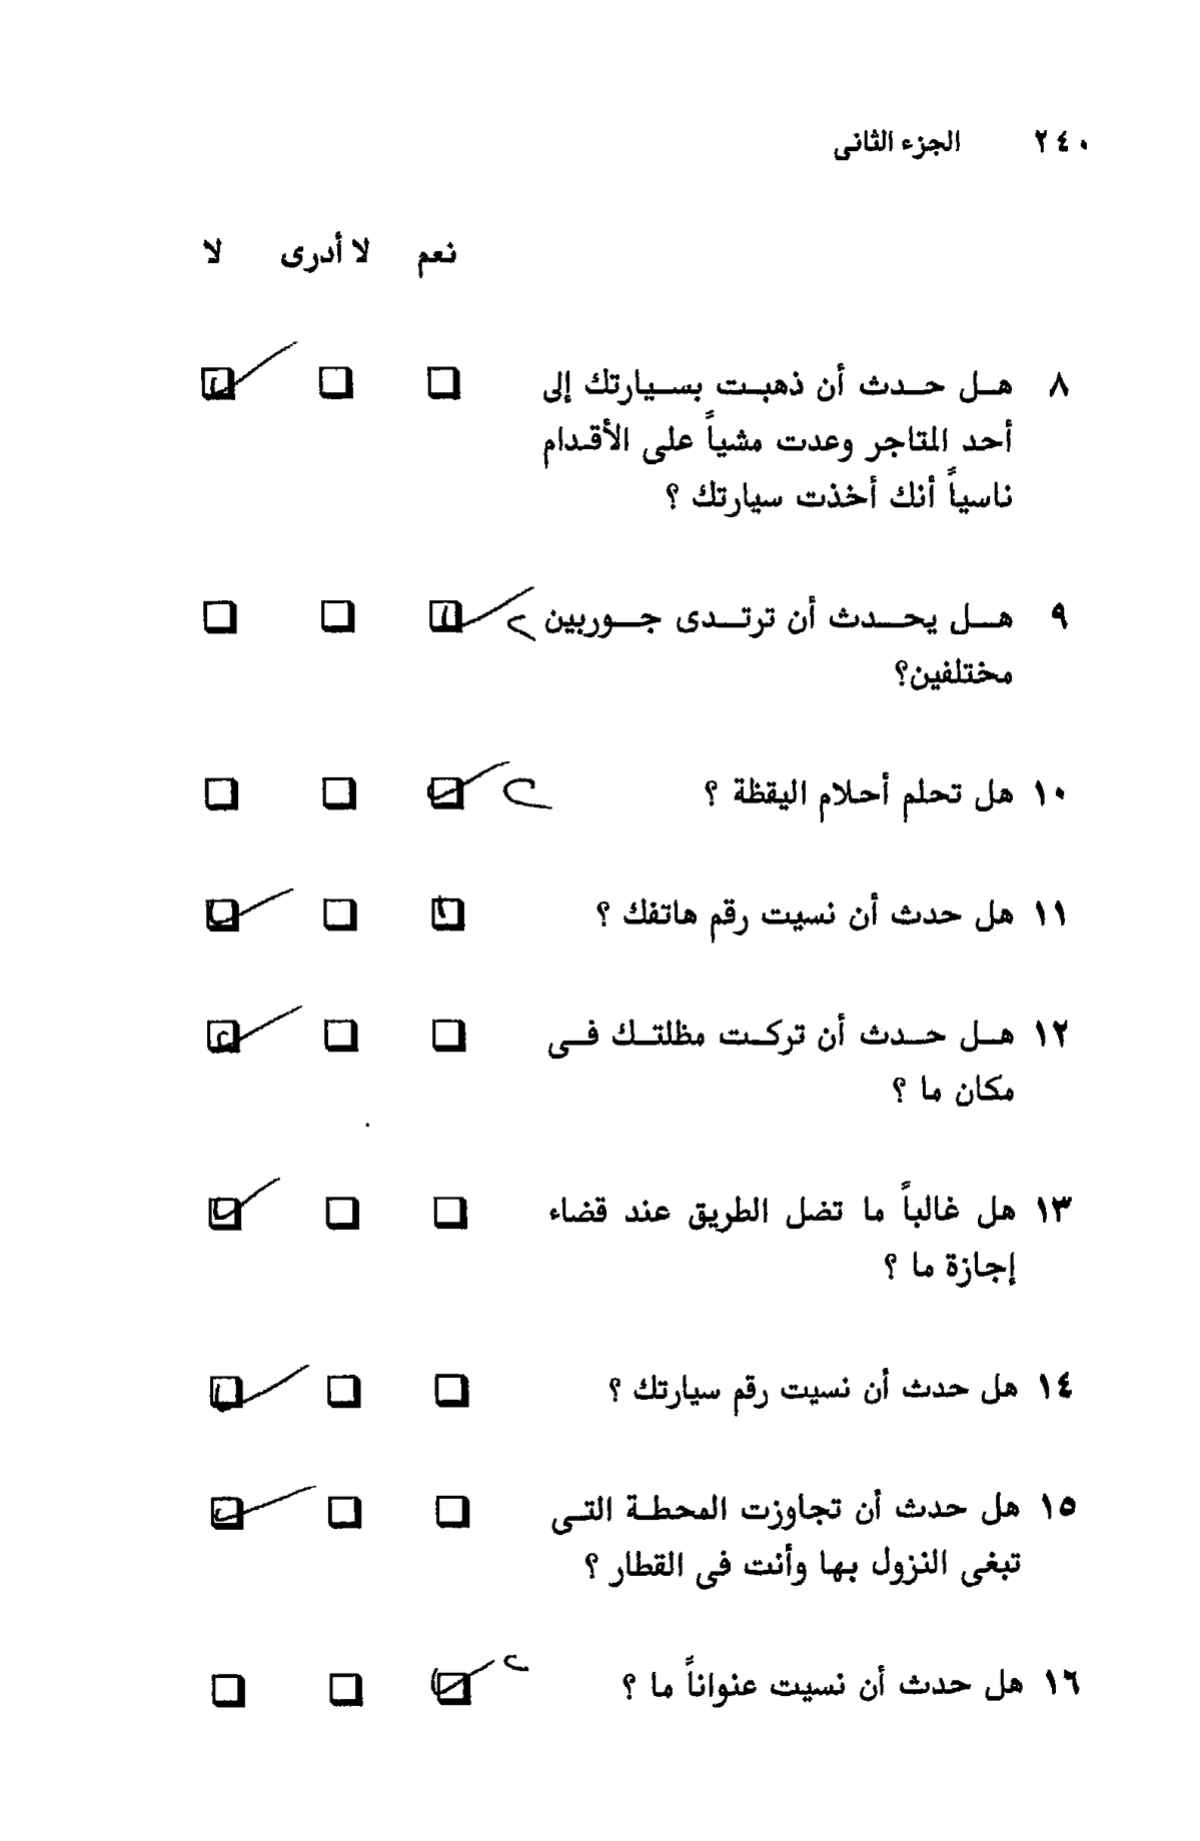 ٢٤٠ الجزء الثانى
نعم لا أدرى لا
٨ هـل حـدث أن ذهبـت بسـيارتك إلى
أحد المتاجر وعدت مشياً على الأقـدام
ناسياً أنك أخذت سيارتك ؟
٩ هـل يحـدث أن ترتـدى جـوربين
مختلفين؟
١٠ هل تحلم أحلام اليقظة ؟
١١ هل حدث أن نسيت رقم هاتفك ؟
١٢ هـل حـدث أن تركـت مظلتـك فـى
مكان ما ؟
١٣ هل غالباً ما تضل الطريق عند قضاء
إجازة ما ؟
١٤ هل حدث أن نسيت رقم سيارتك ؟
١٥ هل حدث أن تجاوزت المحطـة التـى
تبغى النزول بها وأنت فى القطار ؟
١٦ هل حدث أن نسيت عنواناً ما ؟